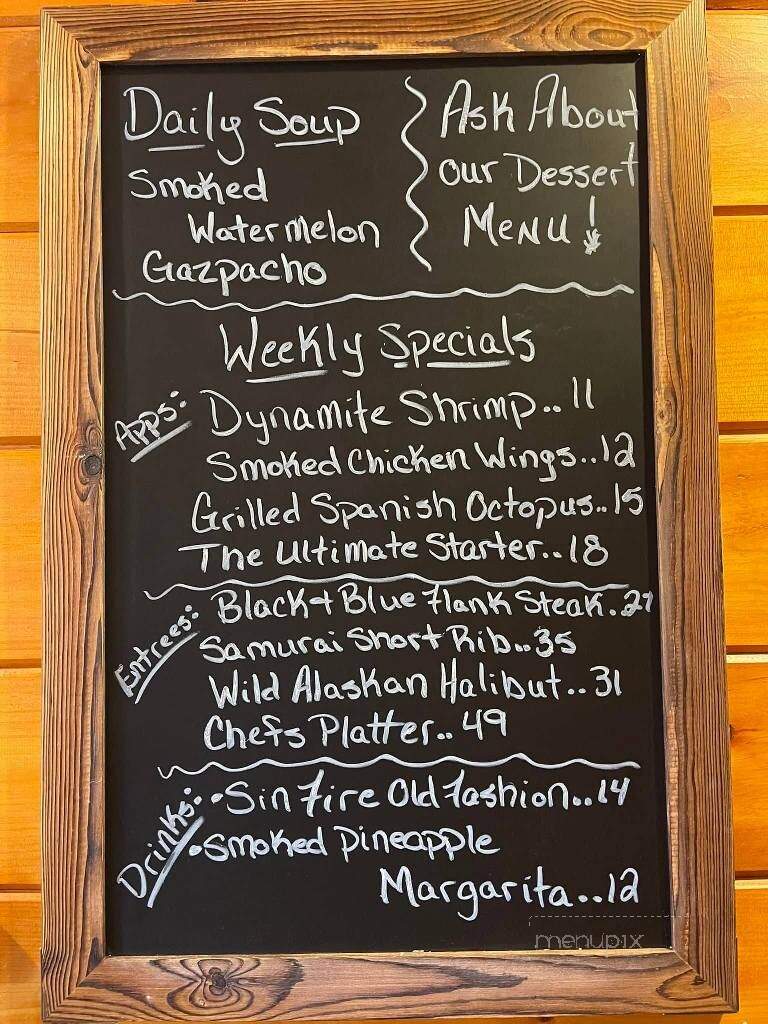 Daily Soup
Smoked
Watermelon
Gazpacho
Ask About
our Dessert
Menu!
Weekly Specials
Apps:
Dynamite Shrimp..11
Smoked Chicken Wings..12
Grilled Spanish Octopus..15
The Ultimate Starter..18
Entrees:
Black + Blue Flank Steak.27
Samurai Short Rib..35
Wild Alaskan Halibut..31
Chefs Platter..49
Drinks:
•Sin Fire Old Fashion..14
•Smoked Pineapple
Margarita..12
menupix